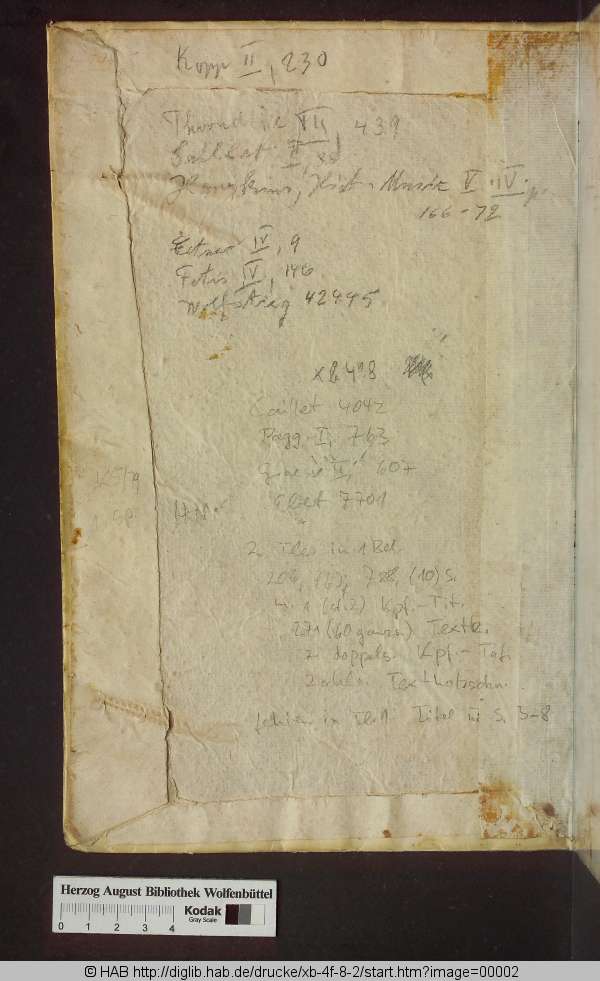 Kopp II, 230
Thorndike VII, 439
Caillet II,
Hawkins, Hist. Music V. IV.
166-72
Eitner IV, 9
Fetis IV, 146
Wolfstieg 42445
xb 4° 8
Caillet 4042
Pagg. I, 763
Graesse II, 607
7701
HN
2 Tle in 1 Bd.
788, (10) S.
1 Kpf.-Tit.
(60 ganzs.) Textk.
2 doppels. Kpf.-Taf.
Textholzschn.
fehlen in Tl. 1 Titel u. S. 3-8
Herzog August Bibliothek Wolfenbüttel
0 1 2 3 4
Kodak
Gray Scale
© HAB http://diglib.hab.de/drucke/xb-4f-8-2/start.htm?image=00002